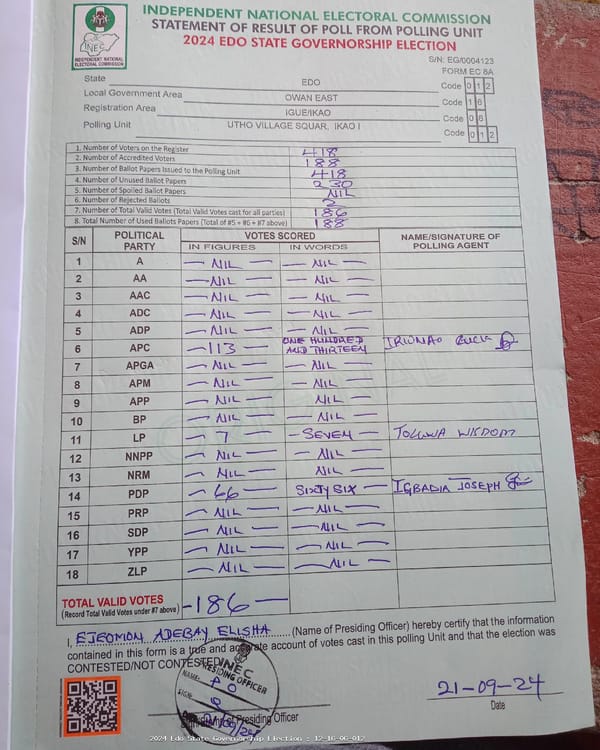 INDEPENDENT NATIONAL ELECTORAL COMMISSION
STATEMENT OF RESULT OF POLL FROM POLLING UNIT
2024 EDO STATE GOVERNORSHIP ELECTION
INEC
INDEPENDENT NATIONAL
ELECTORAL COMMISSION
S/N: EG/0004123
FORM EC 8A
State EDO Code 0 1 2
Local Government Area OWAN EAST Code 1 6
Registration Area IGUE/IKAO Code 0 6
Polling Unit UTHO VILLAGE SQUAR, IKAO I Code 0 1 2
1. Number of Voters on the Register 418
2. Number of Accredited Voters 188
3. Number of Ballot Papers Issued to the Polling Unit 418
4. Number of Unused Ballot Papers 230
5. Number of Spoiled Ballot Papers NIL
6. Number of Rejected Ballots 2
7. Number of Total Valid Votes (Total Valid Votes cast for all parties) 186
8. Total Number of Used Ballots Papers (Total of #5 + #6 + #7 above) 188
S/N POLITICAL PARTY VOTES SCORED NAME/SIGNATURE OF POLLING AGENT
IN FIGURES IN WORDS
1 A — NIL — — NIL —
2 AA — NIL — — NIL —
3 AAC — NIL — — NIL —
4 ADC — NIL — — NIL —
5 ADP — NIL — — NIL —
6 APC — 113 — ONE HUNDRED AND THIRTEEN
7 APGA — NIL — — NIL —
8 APM — NIL — — NIL —
9 APP — NIL — NIL —
10 BP — NIL — — NIL —
11 LP — 7 — — SEVEN — WISDOM
12 NNPP — NIL — — NIL —
13 NRM — NIL — NIL —
14 PDP — 66 — SIXTY SIX — IGBADIA JOSEPH
15 PRP — NIL — — NIL —
16 SDP — NIL — — NIL —
17 YPP — NIL — — NIL —
18 ZLP — NIL — — NIL —
TOTAL VALID VOTES — 186 —
(Record Total Valid Votes under #7 above)
I, EJEOMON ADEBAY ELISHA (Name of Presiding Officer) hereby certify that the information
contained in this form is a true and accurate account of votes cast in this polling Unit and that the election was
CONTESTED/NOT CONTESTED
INEC
PRESIDING OFFICER
NAME: P O
SIGN:
21-09-24
Date
Presiding Officer
2024 Edo State Governorship Election : 12-16-06-012